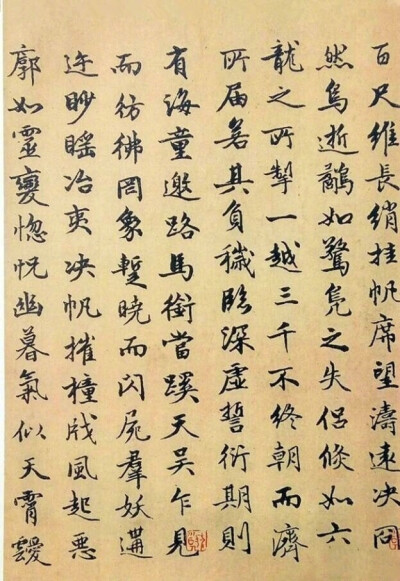 百尺維長綃挂帆席望濤遠决冏
然鳥逝鷸如驚鳧之失侶倏如六
龍之所掣一越三千不終朝而濟
所届若其負穢臨深虛誓衍期則
有海童邀路馬銜當蹊天吳乍見
而彷彿罔象蹔曉而閃屍羣妖遘
迕眇䁘冶夷决帆摧橦戕風起惡
廓如靈變惚怳幽暮氣似天霄靉